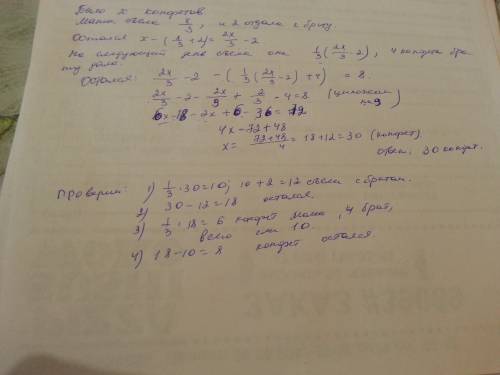 Было x конфетов
Маша съела x/3, и 2 отдала брату
Остался x - (x/3 + 2) = 2x/3 - 2
На следующий день съела она 1/3(2x/3 - 2), 4 конфет бра
ту дала.
Остался: 2x/3 - 2 - (1/3(2x/3 - 2) + 4) = 8
2x/3 - 2 - 2x/9 + 2/3 - 4 = 8 (умножаем на 9)
6x - 18 - 2x + 6 - 36 = 72
4x = 72 + 48
x = (72+48)/4 = 18 + 12 = 30 (конфет)
Ответ. 30 конфет.
Проверим: 1) 1/3 · 30 = 10; 10 + 2 = 12 съели с братом.
2) 30 - 12 = 18 остался.
3) 1/3 · 18 = 6 конфет Маша, 4 брат,
всего 10.
4) 18 - 10 = 8 конфет остался.
ЗАКАЗ